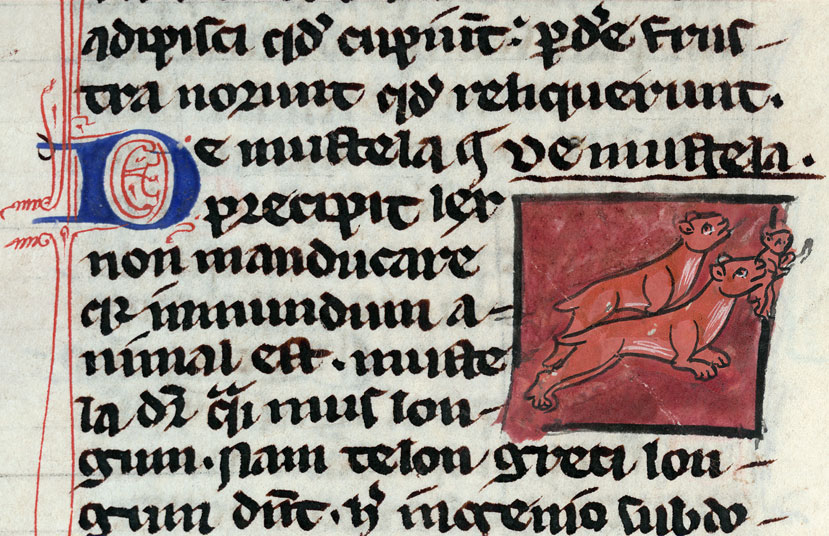 adipisci qđ cupiūt: ꝑdr̄e frus-
tra norunt qđ reliquerunt.
De mustela q̄ De mustela.
precipit lex
non manducare
qꝛ inmundum a-
nimal est. muste
la dr̄ q̄si mus lon-
gum. Nam telon greci lon-
gum dn̄t. h̄ ingenio subdo-